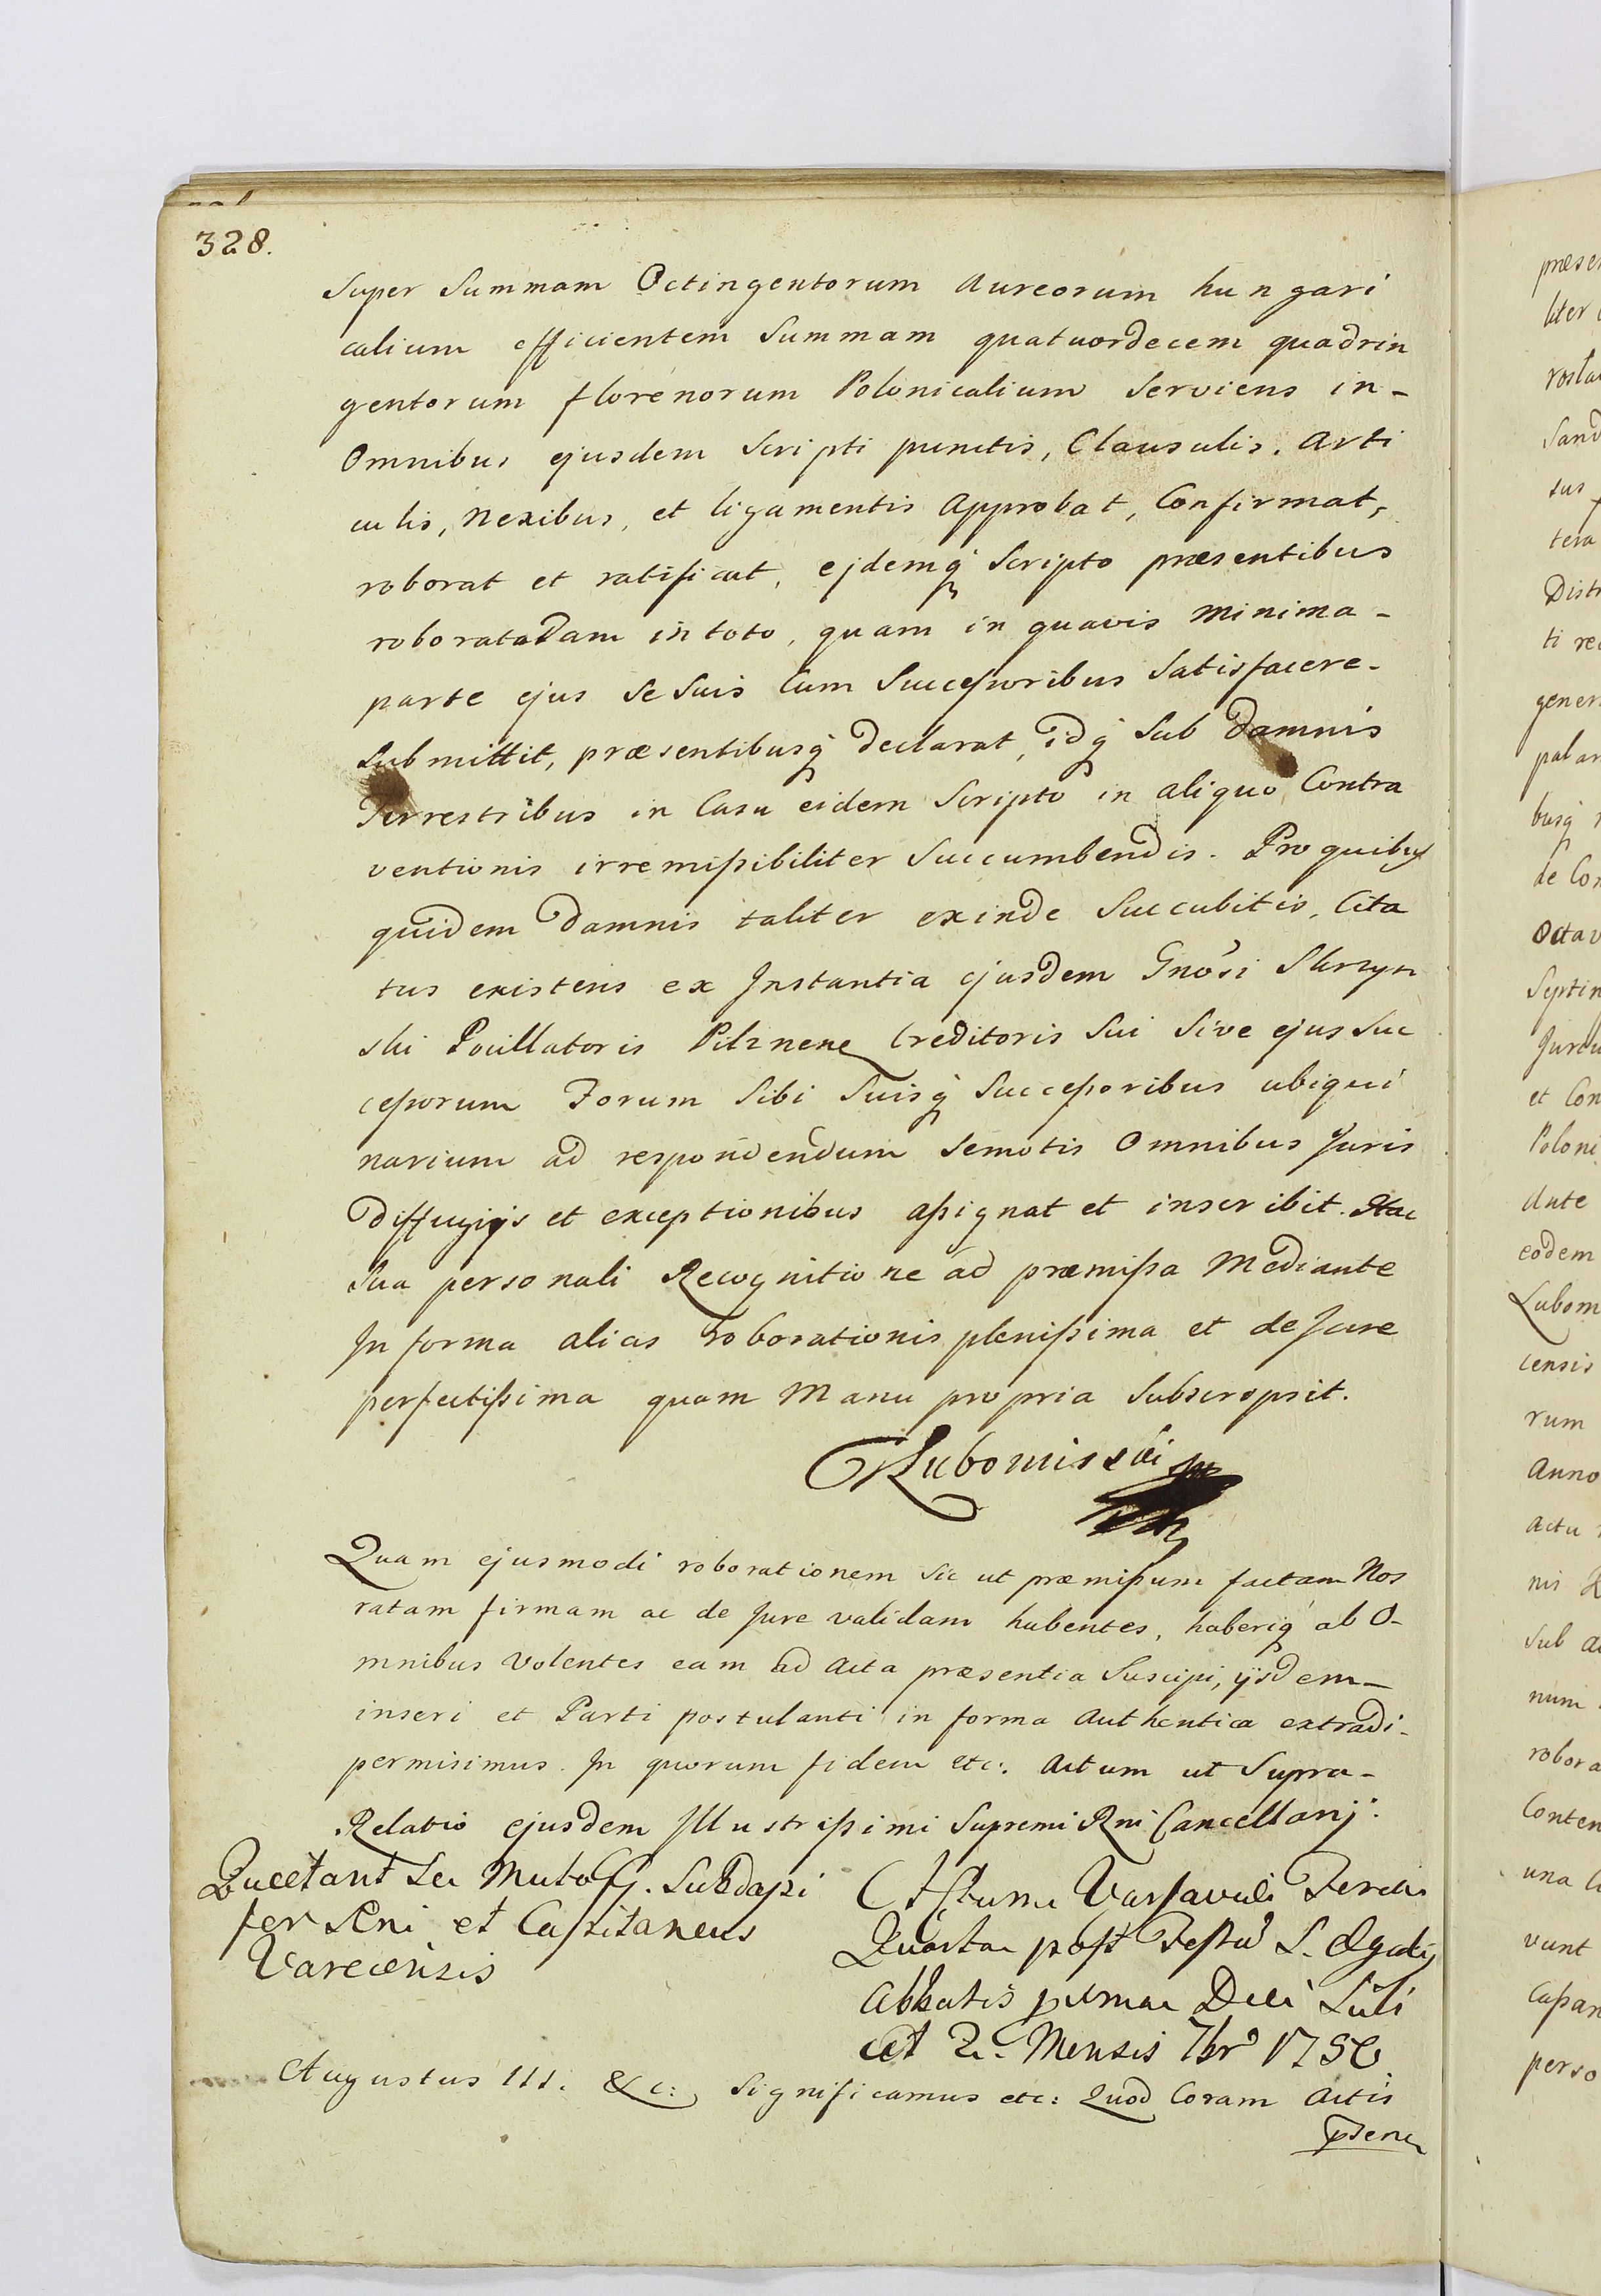 328.
Super Summam Octingentorum Aureorum hungari
calium efficientem Summam quatuordecem quadrin
gentorum florenorum Polonicalium Serviens in-
Omnibus ejusdem Scripti punctis, Clausulis, Arti
culis, Nexibus, et ligamentis Approbat, Confirmat,
roborat et ratificat, ejdemq́ Scripto præsentibus
roborato tam in toto, quam in quavis minima-
parte ejus Se Suis Cum Successoribus Satisfacere-
Submittit, præsentibusq́ declarat, idq́ Sub Damnis
Terrestribus in Casu eidem Scripto in aliquo Contra
ventionis irremissibiliter Succumbendis. Pro quibus
quidem Damnis taliter exinde Succubitis, Cita
tus existens ex Instantia ejusdem Gnosi Skrzyn
ski Pocillatoris Pilznen Creditoris Sui Sive ejus Suc
cessorum Forum Sibi Suisq́ Successoribus ubiqui
narium ad respondendum Semotis Omnibus Juris
Diffugijs et exceptionibus assignat et inscribit. Hac
Sua personali Recognitione ad præmissa Mediante
In forma alias roborationis plenissima et de Jure
perfectissima quam Manu propria Subscripsit.
Lubomirski
Quam ejusmodi roborationem Sic ut præmissum factam Nos
ratam firmam ac de Jure validam habentes, haberiq́ ab O-
mnibus Volentes eam ad Acta præsentia Suscipi, ijsdem-
inseri et Parti postulanti in forma Authentica extradi-
permisimus. In quorum fidem etc: Actum ut Supra-
Relatio ejusdem Illustrissimi Supremi Rni Cancellarij.
Subdapi
fer et Capitaneus
Varecensis
Actum Varsaviæ Feria
Quarta post Festum S. Egidij
Abbatis prima Die Sili
cet 2. Mensis 7br 1750
Augustus III. &c: Significamus etc: Quod Coram Actis